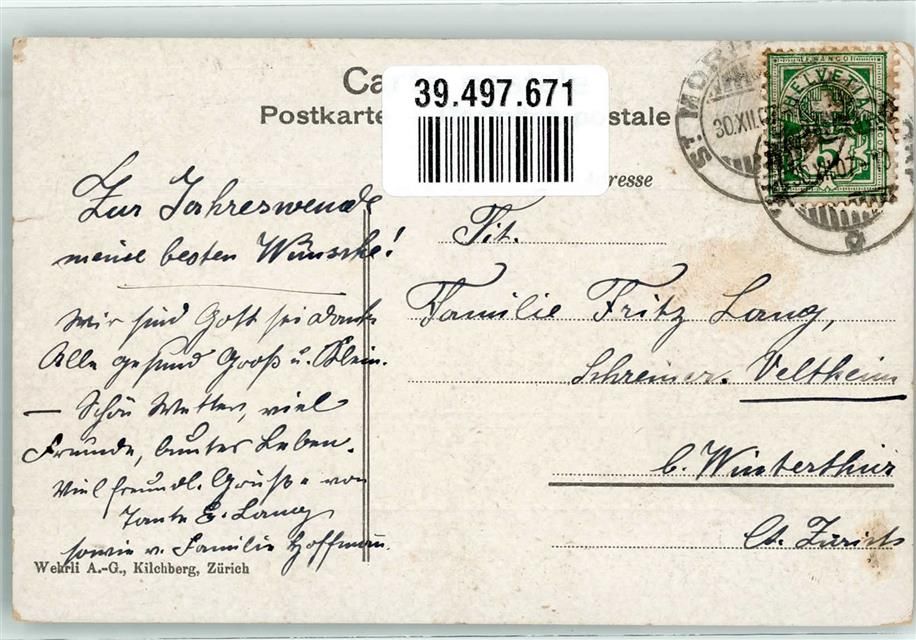 39.497.671
Postkarte
postale
Adresse
ST. MORITZ
30.XII.07
FRANCO
HELVETIA
5
Zur Jahreswende
meine besten Wünsche!
Wir sind Gott sei dank
Alle gesund Groß u. Klein.
— Schön Wetter, viel
Freunde, buntes Leben.
Viel freundl. Grüße von
Tante E. Lang
sowie v. Familie Hoffmann.
Tit.
Familie Fritz Lang,
Schreiner. Veltheim
b. Winterthur
Ct. Zürich
Wehrli A.-G., Kilchberg, Zürich